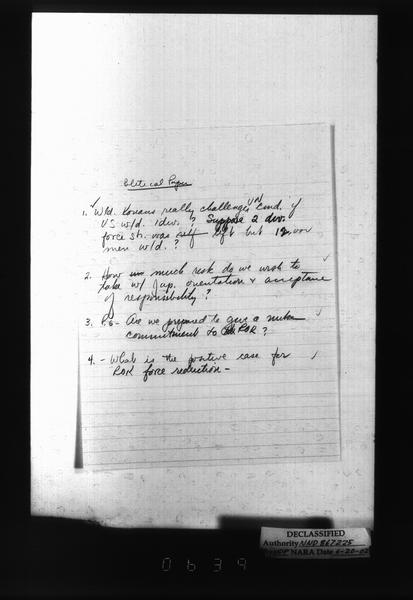 Political Paper
1. ✓ Wld. Koreans really challenge UN Cmd. if
US w/d. 1 div.? Suppose 2 div.
force str. was left but 12,000
men w/d.?
2. How much risk do we wish to
take w/ Jap. orientation & acceptance
of responsibility?
3. Are we prepared to give a
commitment to ROK?
4. - What is the positive case for
ROK force reduction -
DECLASSIFIED
Authority NND 867225
NARA Date 6-20-02
0639